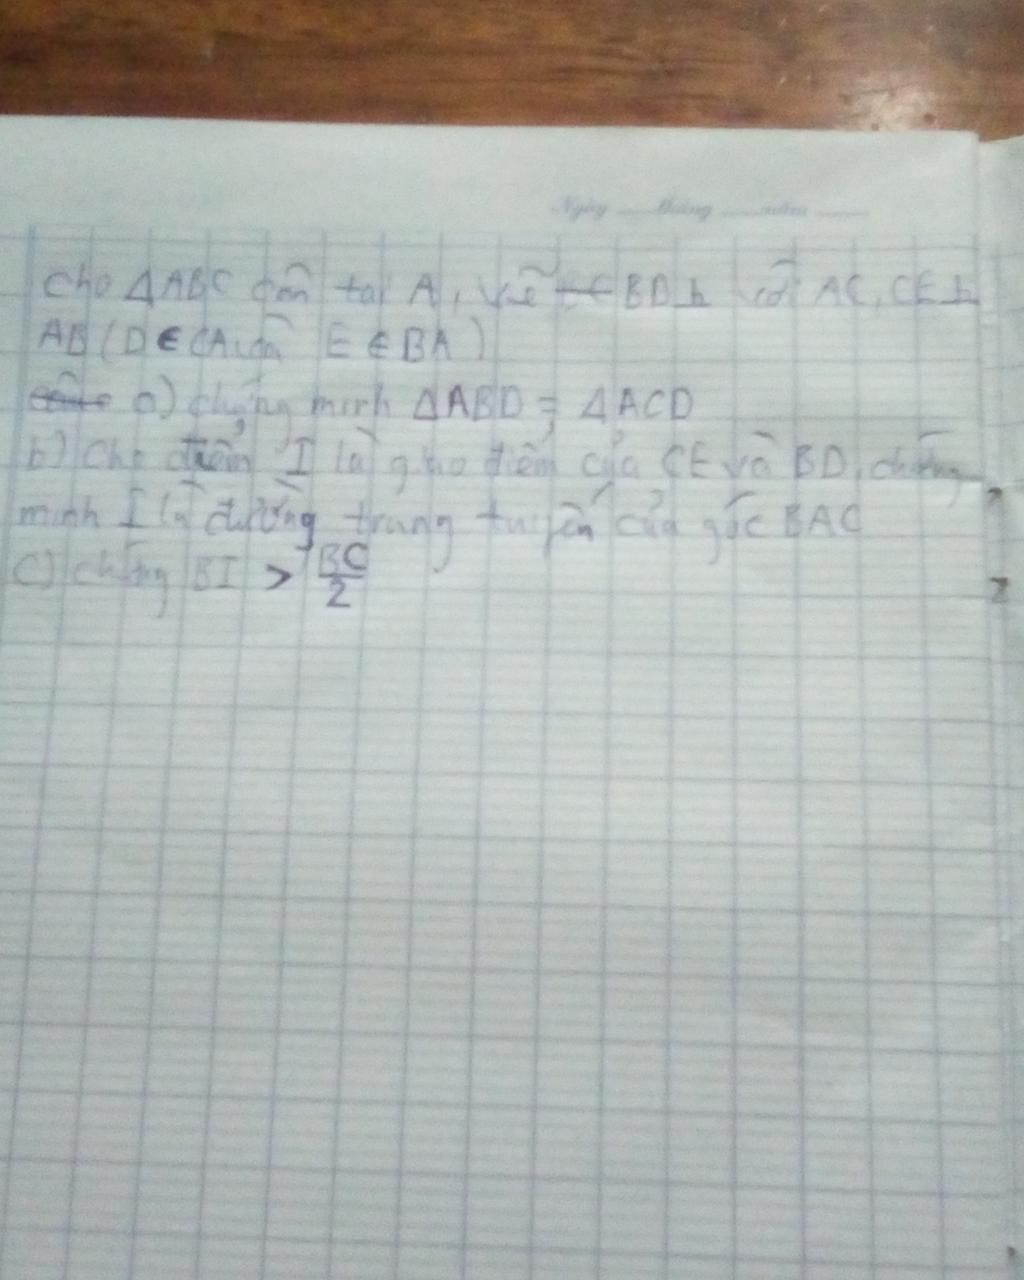 Ngày tháng năm
Cho ΔABC cân tại A, vẽ BD⊥ với AC, CE⊥
AB (D ∈ CA và E ∈ BA)
a) chứng minh ΔABD = ΔACD
b) Cho điểm I là giao điểm của CE và BD, chứng
minh I là đường trung tuyến của góc BAC
c) chứng BI > BC/2